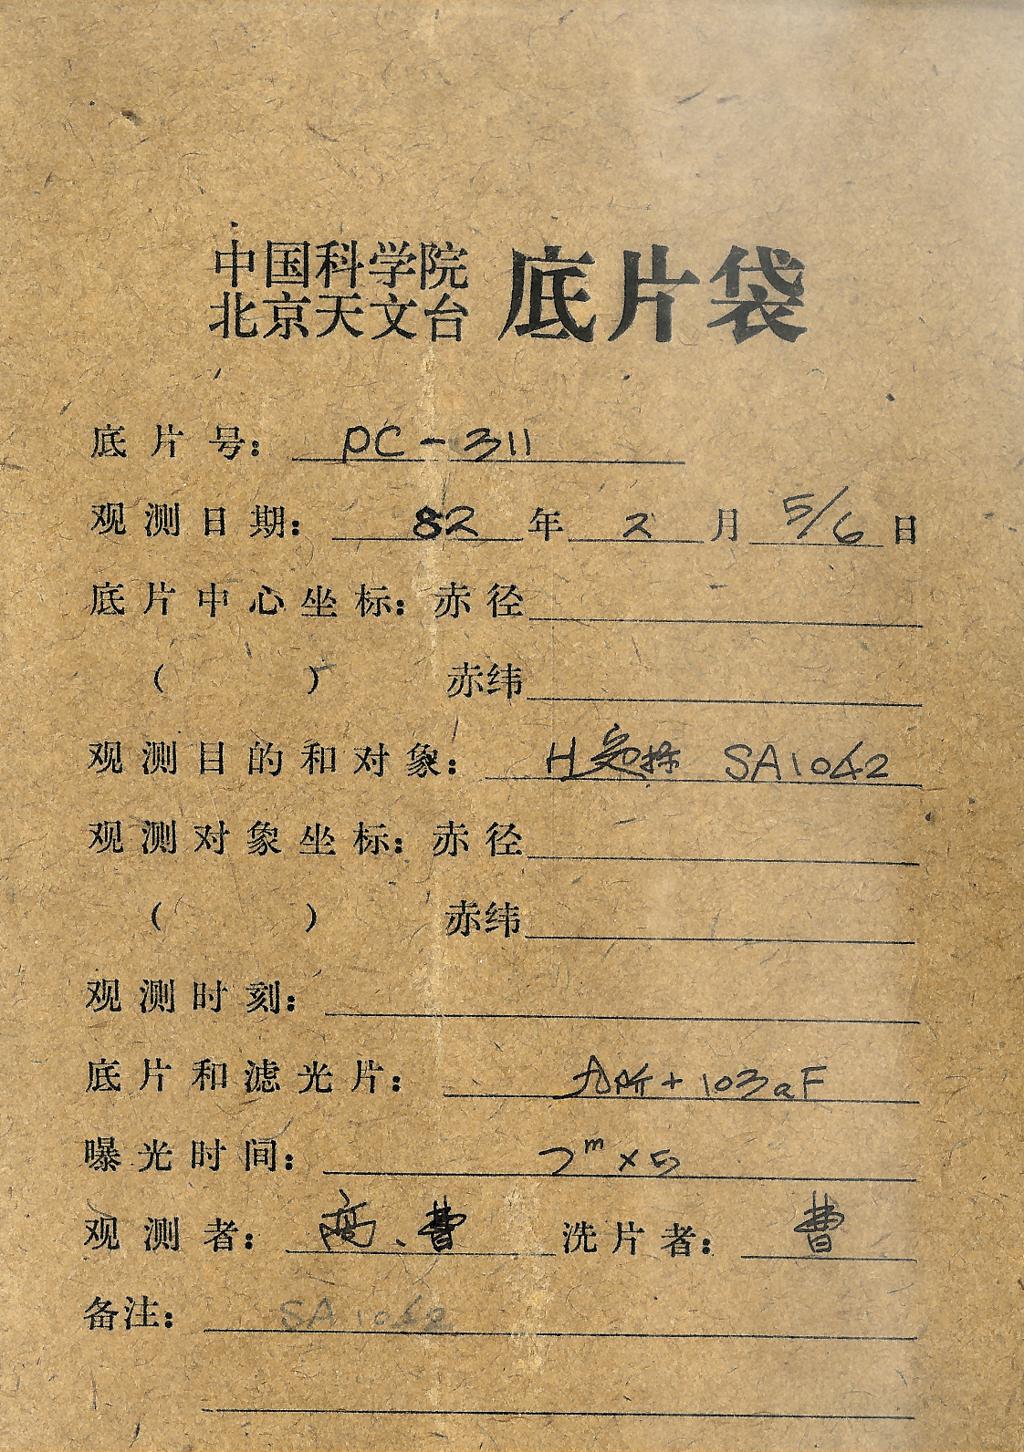 中国科学院
北京天文台 底片袋
底片号: PC-311
观测日期: 82年2月5/6日
底片中心坐标: 赤径
( ) 赤纬
观测目的和对象: H SA1042
观测对象坐标: 赤径
( ) 赤纬
观测时刻:
底片和滤光片: + 103aF
曝光时间: 7m×5
观测者: 高、曹 洗片者: 曹
备注: